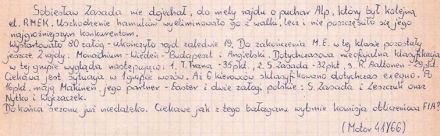 Sobiesław Zasada nie dojechał, do mety rajdu o puchar Alp, który był kolejną
el. RMEK. Uszkodzenie hamulców wyeliminowało go z walki, lecz i nie poszczęściło się jego
najgroźniejszym konkurentom.
Wystartowało 80 załóg - ukończyło rajd zaledwie 19. Do zakończenia M.E. w tej klasie pozostały
jeszcze 2 rajdy: Monachium - Wiedeń - Budapeszt i Angielski. Dotychczasowa nieoficjalna klasyfikacja
w tej grupie wygląda następująco: 1. T. Trana - 35pkt, 2. S. Zasada - 32pkt, 3. R. Aaltonen - 29 pkt.
Ciekawa jest sytuacja w 1 grupie wozów. Aż 6 kierowców sklasyfikowano dotychczas exequo. Po
16pkt. mają Makinen, jego partner - Easter i dwie załogi polskie: S. Zasada i Leszczuk oraz
Nytko i Wędrychowski.
Do końca sezonu już niedaleko. Ciekawe jak z tego bałaganu wybrnie komisja obliczeniowa FIA?
(Motor 41/66)